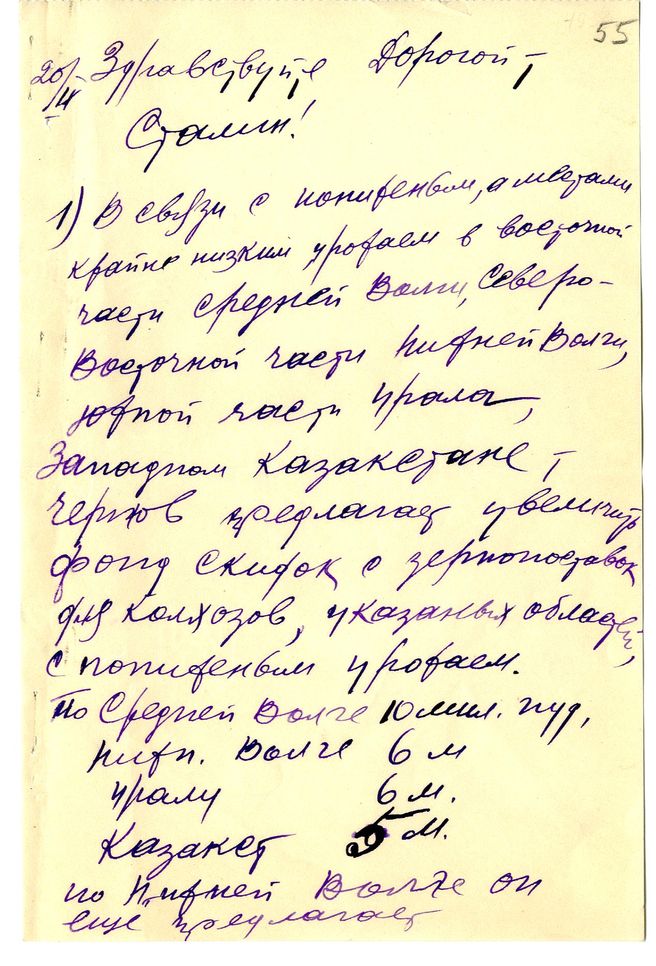 55
20/IX Здравствуйте Дорогой
Сталин!
1) В связи с пониженым, а местами
крайне низким урожаем в восточной
части Средней Волги, Северо-
Восточной части Нижней Волги,
южной части Урала,
Западном Казакстане -
Чернов предлагает увеличить
фонд скидок с зернопоставок
для колхозов, указаных областей,
с пониженым урожаем.
По Средней Волге 10 мил. пуд,
Нижн. Волге 6 м
Уралу 6 м.
Казакст 5 м.
по Нижней Волге он
еще предлагает